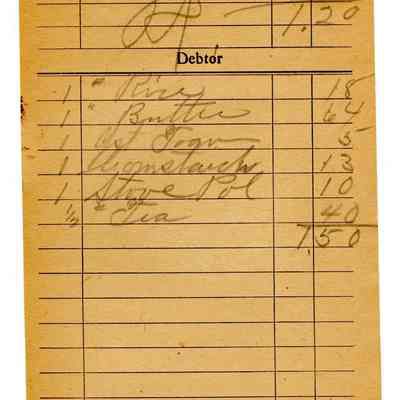 1.20
Debtor
1 " Rice 18
1 " Butter 64
1 5
1 13
1 Stove Pol 10
1/2 " Tea 40
1.50